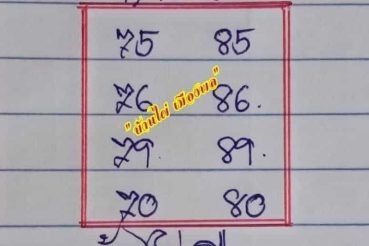 75 85
76 86.
"บ้านไผ่ เมืองพล"
79. 89.
70 80